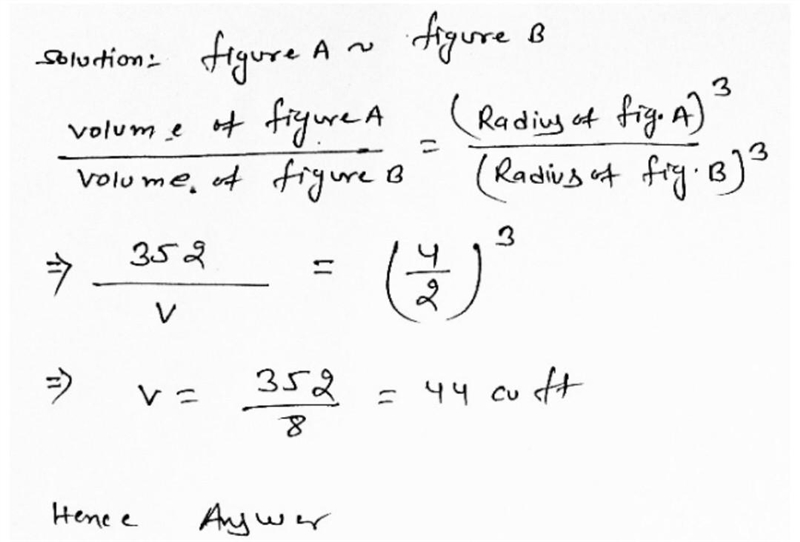 Solution:- figure A ~ figure B
volume of figure A / volume of figure B = (Radius of fig. A)³ / (Radius of fig. B)³
⇒ 352 / V = (4/2)³
⇒ V = 352 / 8 = 44 cu ft
Hence Answer